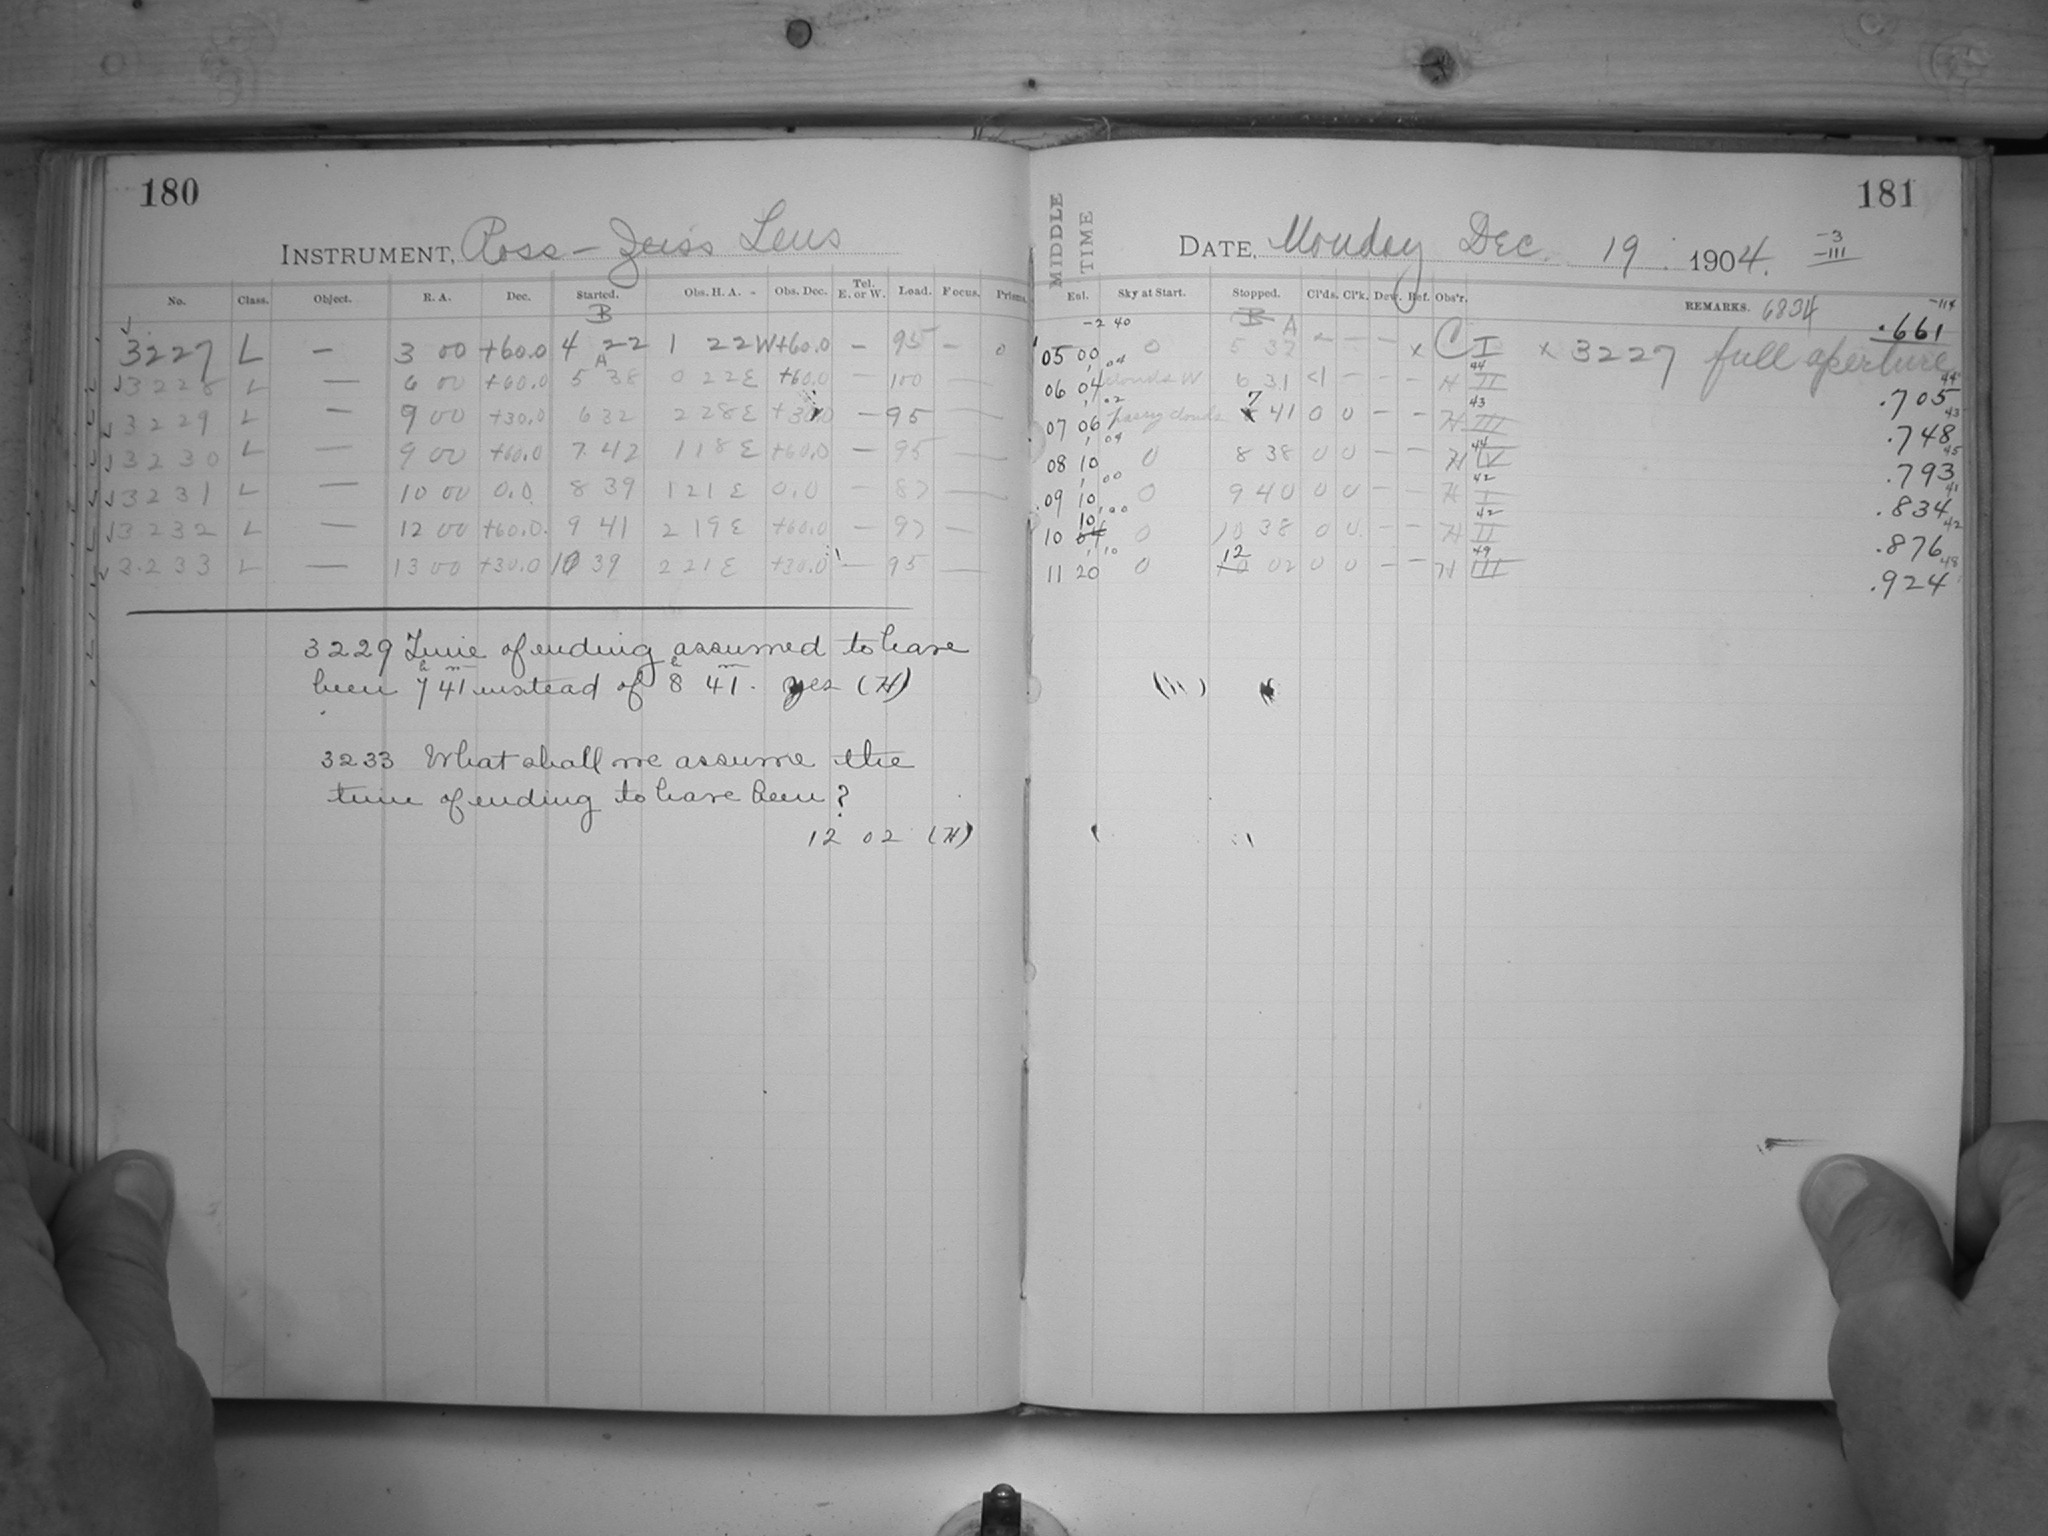 180
INSTRUMENT, Ross-Zeiss Lens
No. Class. Object. R. A. Dec. Started. Obs. H. A. - Obs. Dec. Tel. E. or W. Load. Focus. Prisms.
B
3227 L — 3 00 +60.0 4 22 1 22W +60.0 — 95 — 0
A
3228 L — 6 00 +60.0 5 38 0 22E +60.0 — 100 —
3229 L — 9 00 +30.0 6 32 2 28E +30.0 — 95 —
3230 L — 9 00 +60.0 7 42 1 18E +60.0 — 95 —
3231 L — 10 00 0.0 8 39 1 21E 0.0 — 87 —
3232 L — 12 00 +60.0 9 41 2 19E +60.0 — 97 —
3233 L — 13 00 +30.0 10 39 2 21E +30.0 — 95 —
3229 Time of ending assumed to have
been 7h 41m instead of 8h 41m. yes (H)
3233 What shall we assume the
time of ending to have been?
12 02 (H)
181
MIDDLE TIME
DATE, Monday Dec. 19 1904.
-3
-111
Ent. Sky at Start. Stopped. Cl'ds. Cl'k. Dew. Ref. Obs'r. REMARKS. 6834
-2 40 B A -114
05 00 0 5 37 — — — x C I x 3227 full aperture .661
1,04 44 44
06 04 clouds W 6 31 <1 — — — H II .705
1,02 43 43
07 06 passing clouds 7 41 0 0 — — H III .748
1,04 44 45
08 10 0 8 38 0 0 — — H IV .793
1,00 42 41
09 10 0 9 40 0 0 — — H I .834
1,00 42 42
10 10 0 10 38 0 0 — — H II .876
1,10 49 48
11 20 0 12 02 0 0 — — H III .924